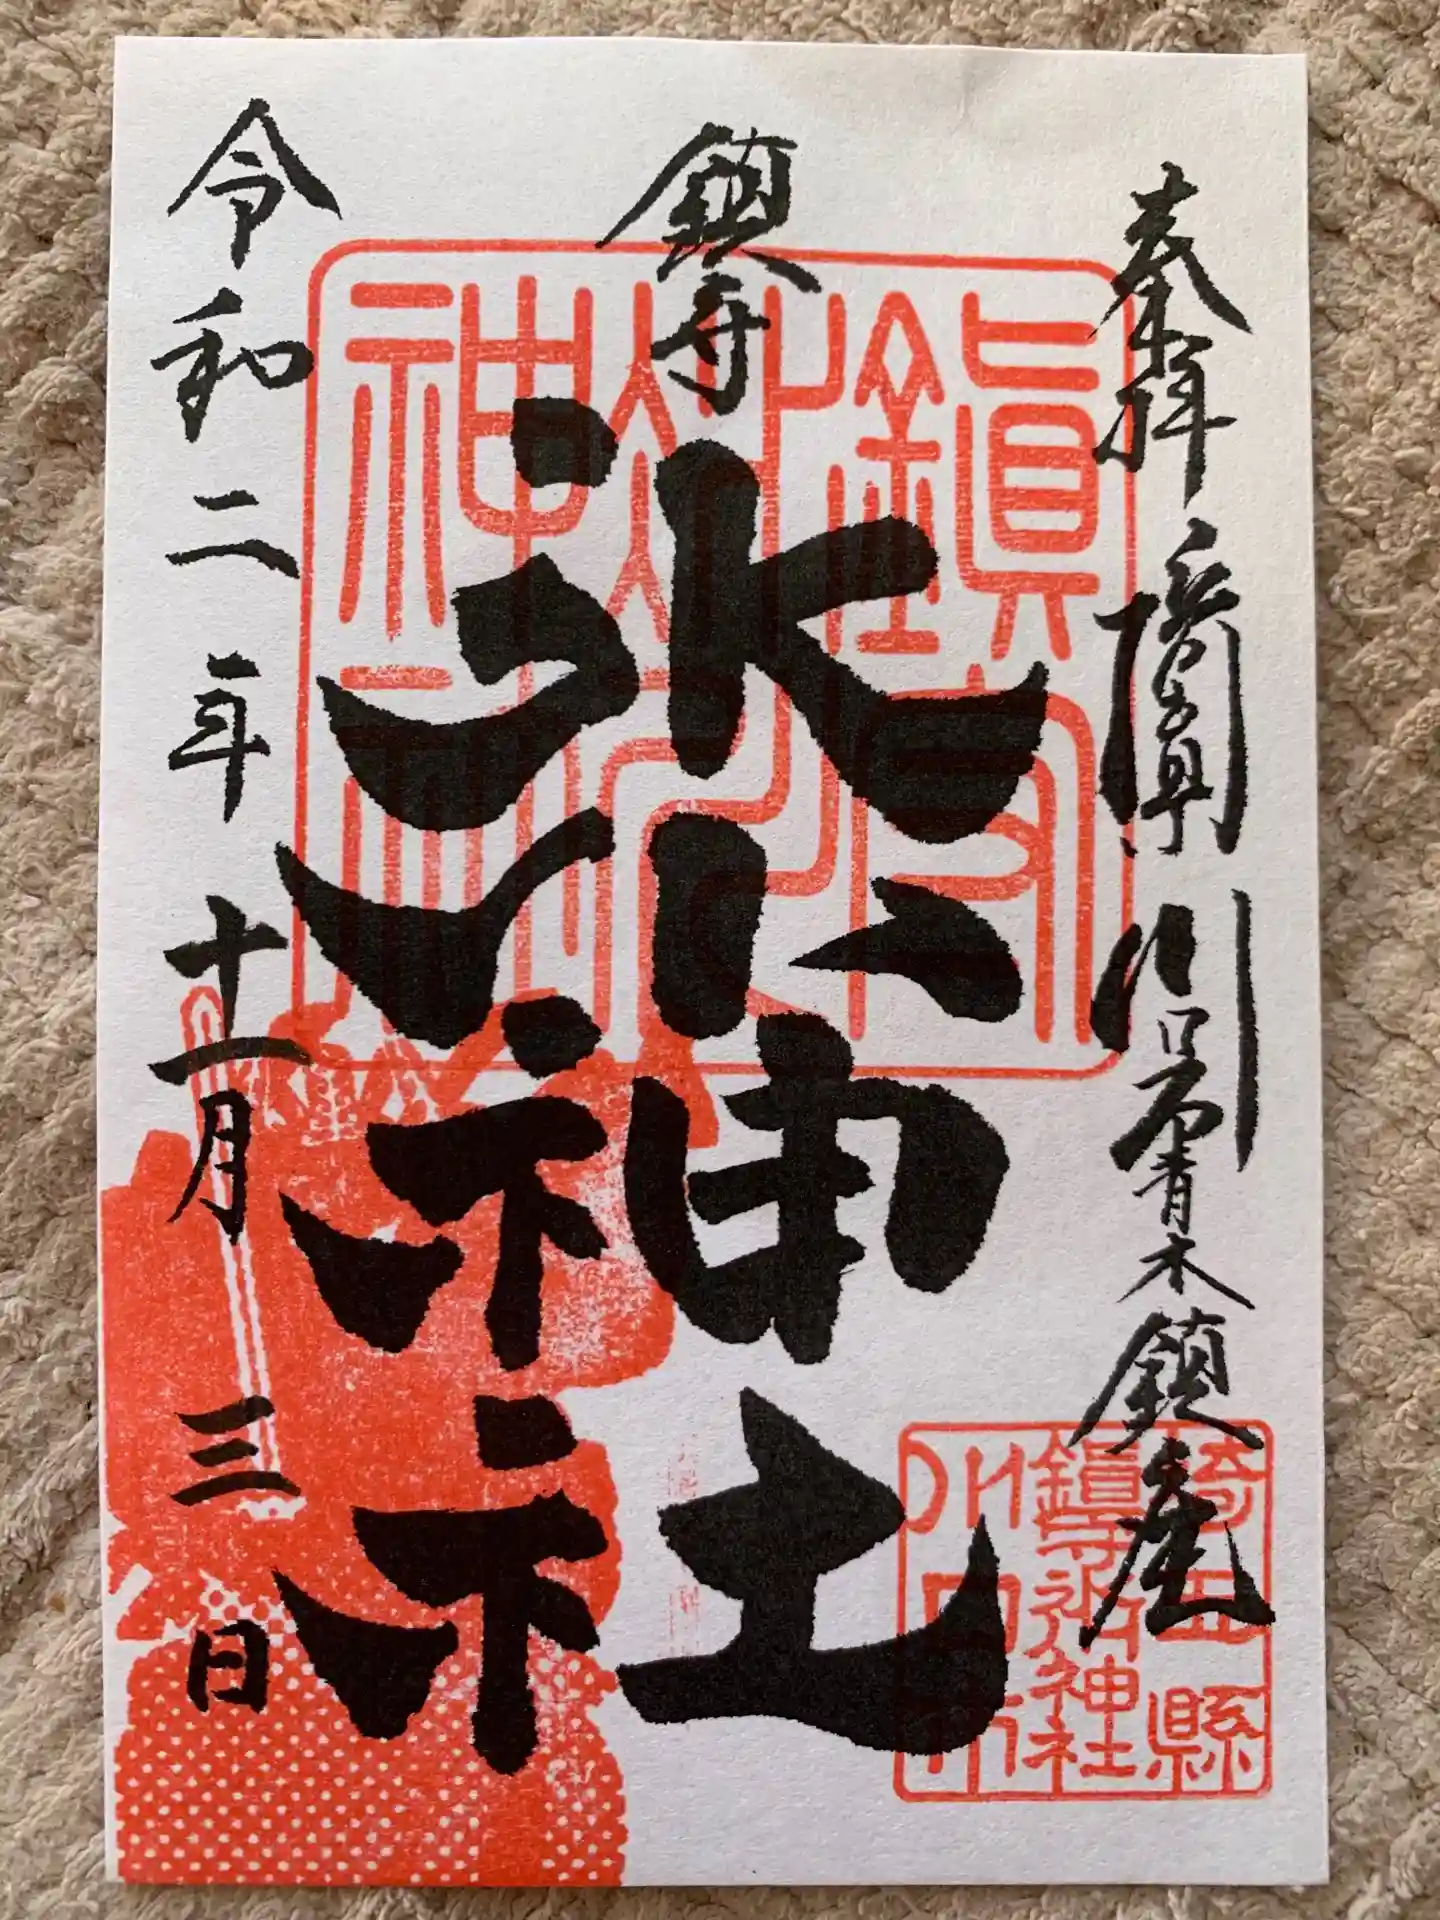 奉拝
川口
青木
鎮座
鎮守
氷川神社
令和二年十一月三日
鎮守
氷川
神社
埼玉縣
川口市
鎮守氷川神社